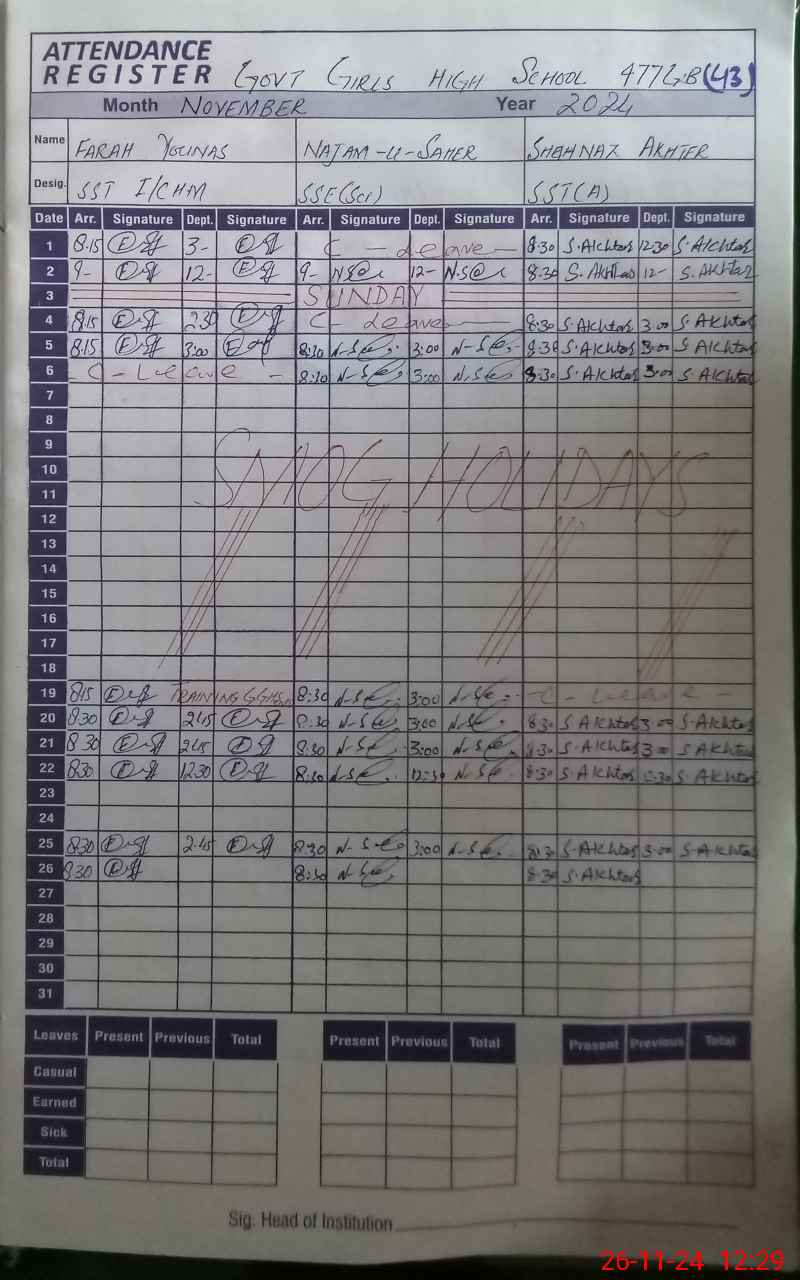 ATTENDANCE
REGISTER GOVT GIRLS HIGH SCHOOL 477GB (43)
Month NOVEMBER Year 2024
Name FARAH YOUNAS NAJAM-U-SAHER SHAHNAZ AKHTER
Desig. SST I/CHM SSE(Sci) SST(A)
Date Arr. Signature Dept. Signature Arr. Signature Dept. Signature Arr. Signature Dept. Signature
1 8.15 3- C - Leave 8.30 S.Akhtar 12.30 S.Akhtar
2 9- 12- 9- 12- 8.30 S.Akhtar 12- S.Akhtar
3 SUNDAY
4 8.15 2.30 C - Leave 8.30 S.Akhtar 3.00 S.Akhtar
5 8.15 3:00 8:30 3:00 8.30 S.Akhtar 3.00 S.Akhtar
6 C - Leave - 8:30 3:00 8.30 S.Akhtar 3.00 S.Akhtar
7
8
9
10 SMOG HOLIDAYS
11
12
13
14
15
16
17
18
19 815 TRAINING 8:30 3:00 - C - Leave -
20 830 2:45 8:30 3:00 8.30 S.Akhtar 3.00 S.Akhtar
21 830 2:45 8:30 3:00 8.30 S.Akhtar 3.00 S.Akhtar
22 830 1230 8:30 12:30 8.30 S.Akhtar S.Akhtar
23
24
25 830 2.45 8:30 3:00 8.30 S.Akhtar 3.00 S.Akhtar
26 8.30 8:30 8.30 S.Akhtar
27
28
29
30
31
Leaves Present Previous Total Present Previous Total Present Previous Total
Casual
Earned
Sick
Total
Sig. Head of Institution
26-11-24 12:29